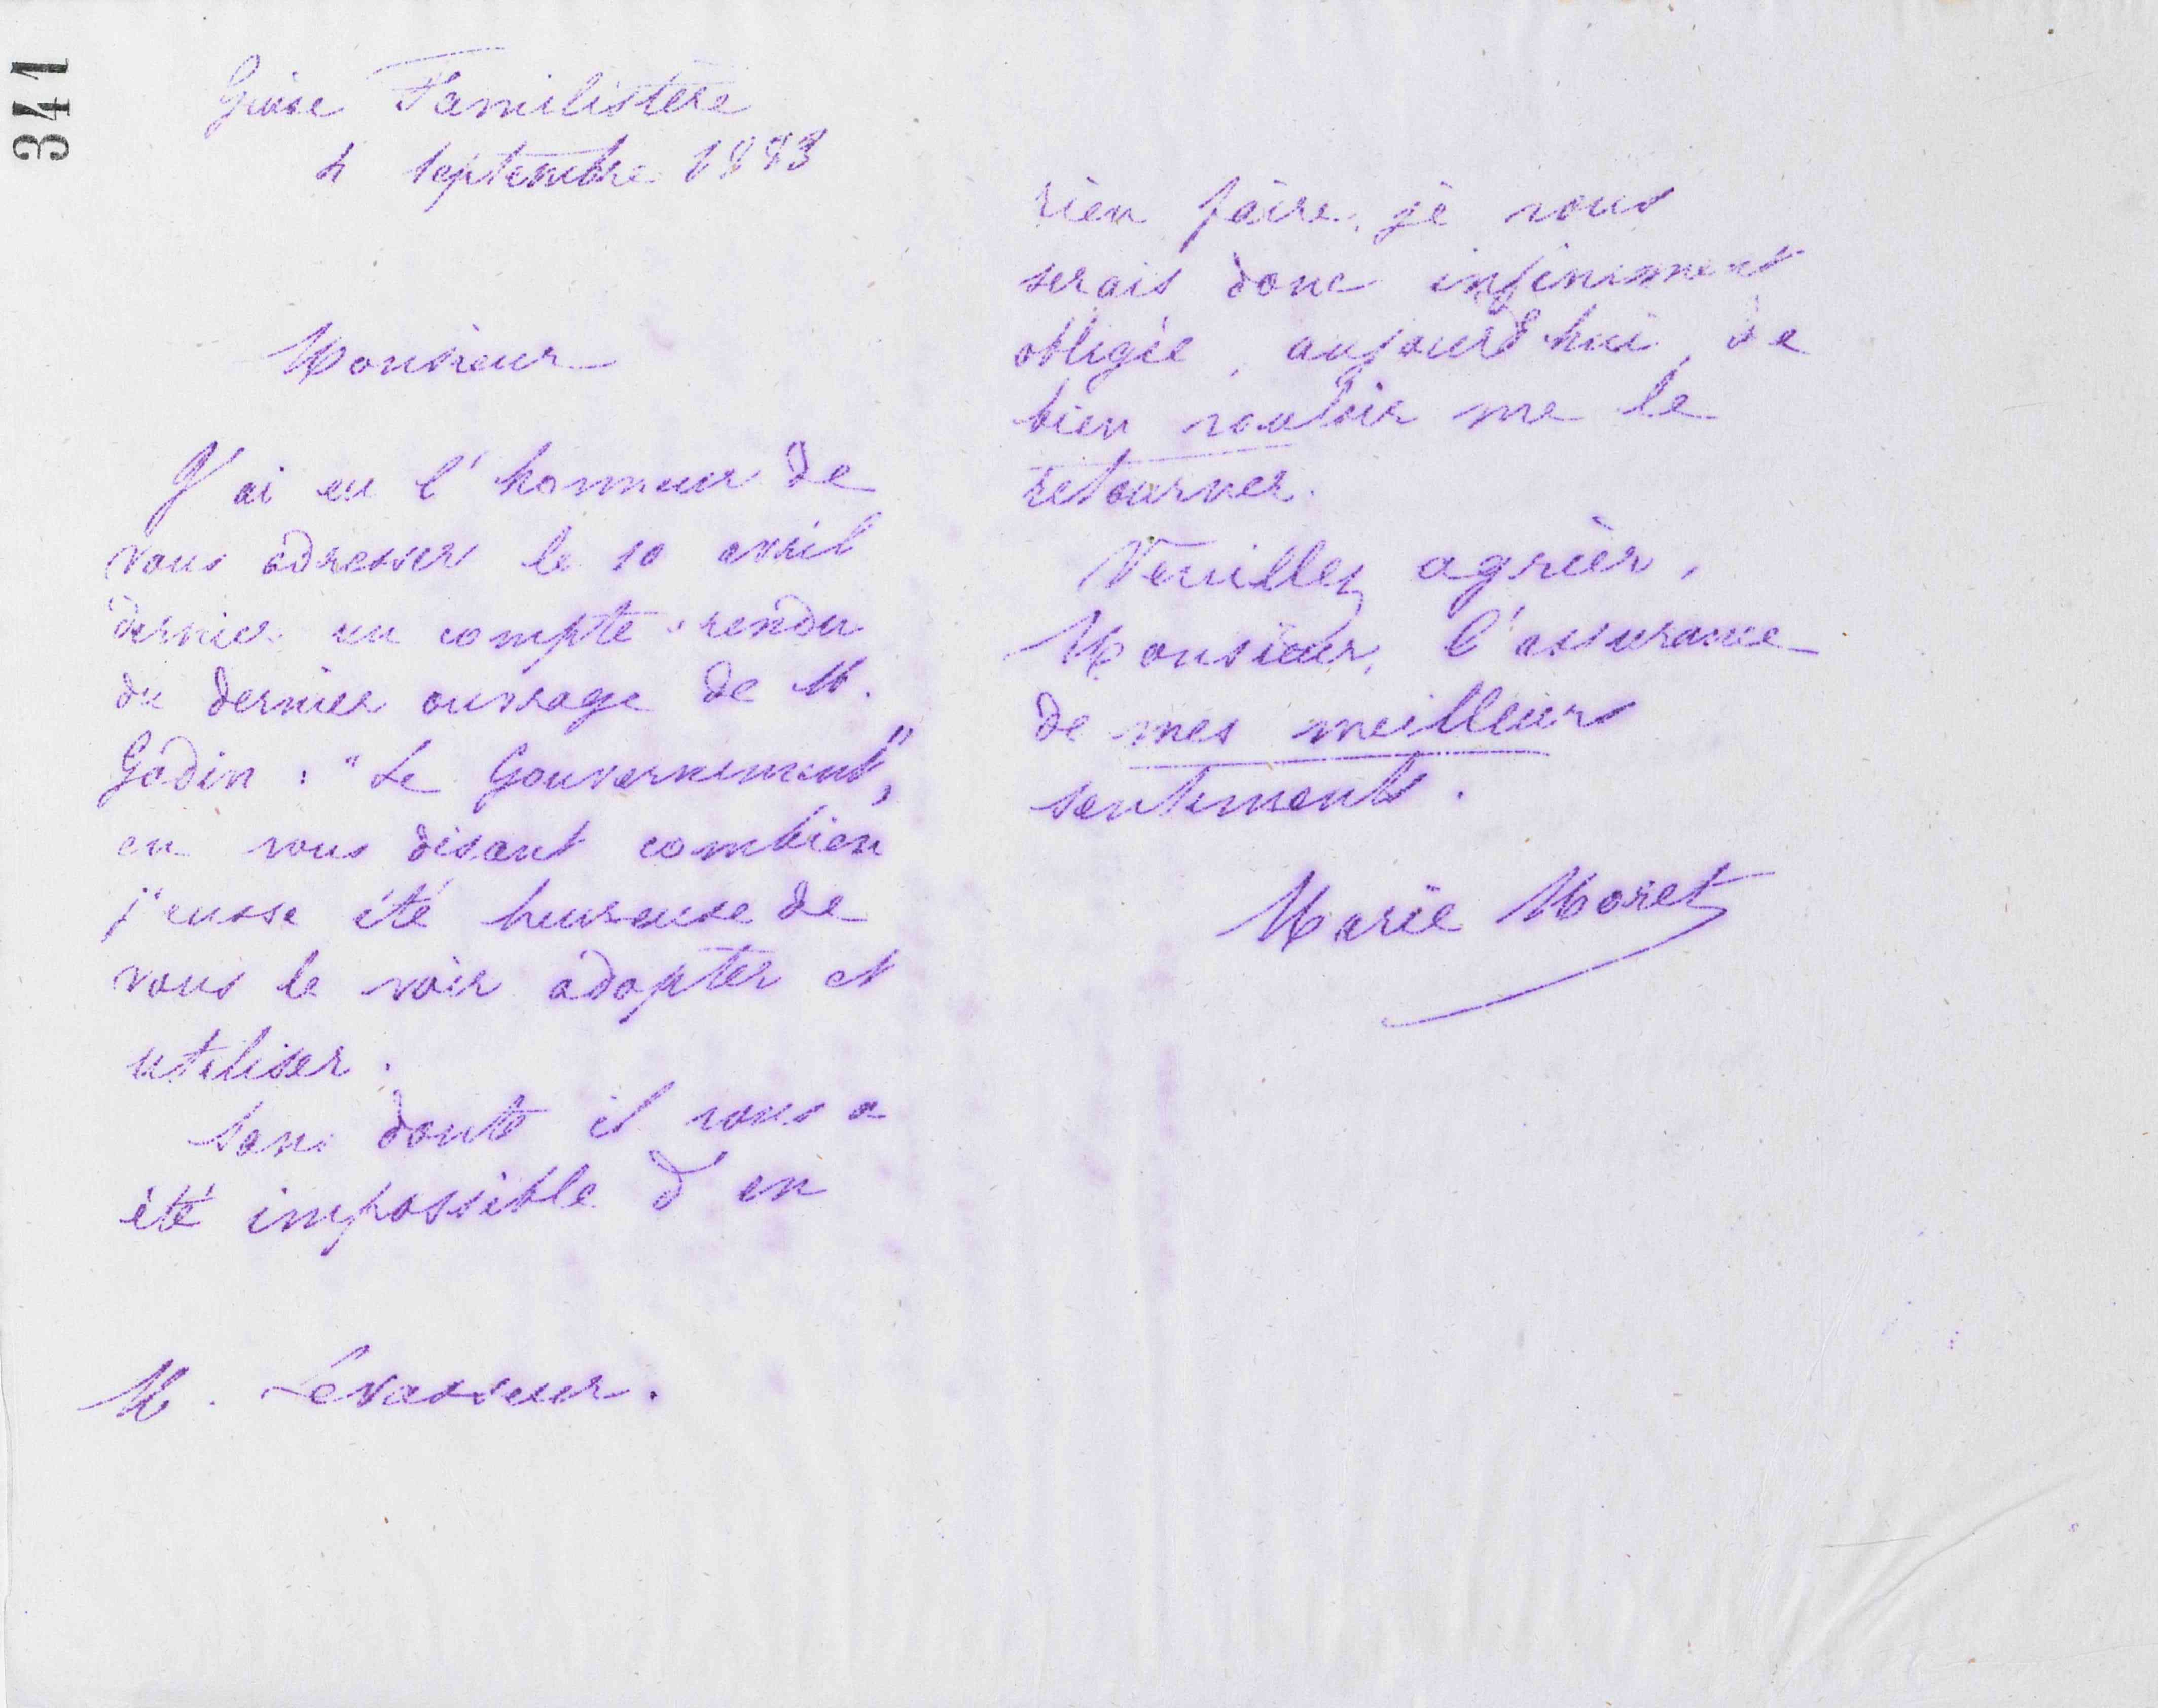 341
Guise Familistère
4 septembre 1883
Monsieur
J'ai eu l'honneur de
vous adresser le 10 avril
dernier un compte-rendu
du dernier ouvrage de M.
Godin : "Le Gouvernement",
en vous disant combien
j'eusse été heureuse de
vous le voir adopter et
utiliser.
Sans doute il vous a
été impossible d'en
M. Levasseur.
rien faire, je vous
serais donc infiniment
obligée, aujourd'hui, de
bien vouloir me le
retourner.
Veuillez agréer,
Monsieur, l'assurance
de mes meilleurs
sentiments.
Marie Moret